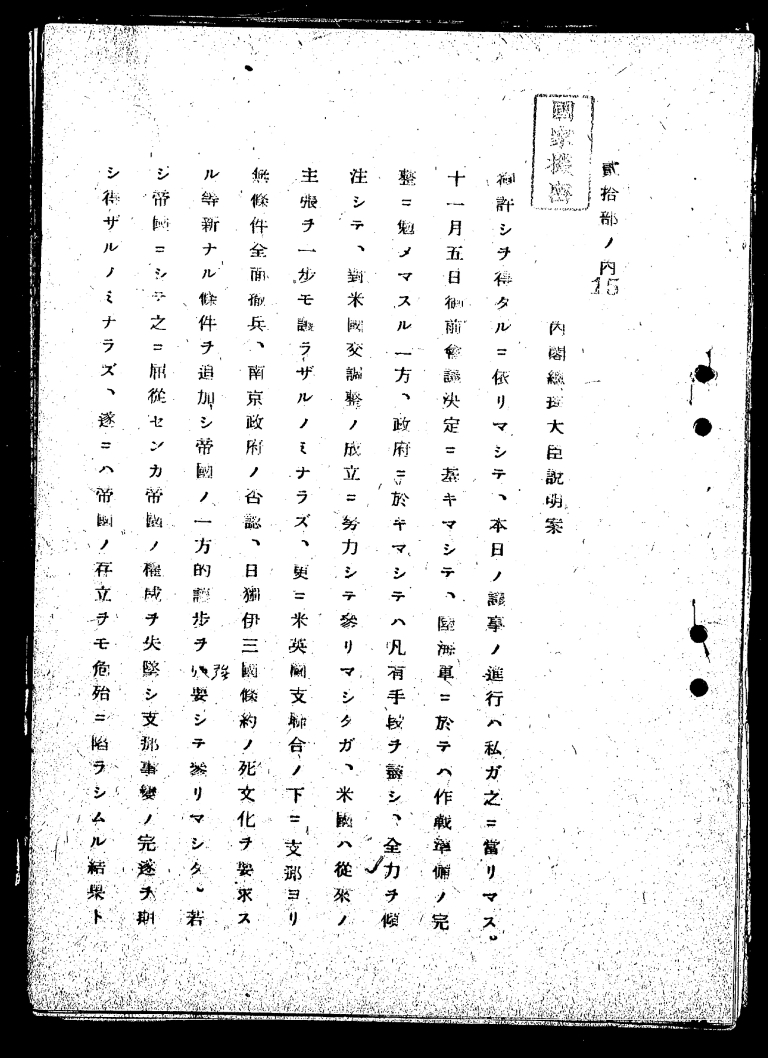 國家機密
貳拾部ノ内
15
内閣總理大臣説明案
御許シヲ得タルニ依リマシテ、本日ノ議事ノ進行ハ私ガ之ニ當リマス。
十一月五日御前會議決定ニ基キマシテ、陸海軍ニ於テハ作戰準備ノ完
整ニ勉メマスル一方、政府ニ於キマシテハ凡有手段ヲ盡シ、全力ヲ傾
注シテ、對米國交調整ノ成立ニ努力シテ參リマシタガ、米國ハ從來ノ
主張ヲ一歩モ讓ラザルノミナラズ、更ニ米英蘭支聯合ノ下ニ支那ヨリ
無條件全面撤兵、南京政府ノ否認、日獨伊三國條約ノ死文化ヲ要求ス
ル等新ナル條件ヲ追加シ帝國ノ一方的讓歩ヲ强要シテ參リマシタ。若
シ帝國ニシテ之ニ屈從センカ帝國ノ權威ヲ失墜シ支那事變ノ完遂ヲ期
シ得ザルノミナラズ、遂ニハ帝國ノ存立ヲモ危殆ニ陷ラシムル結果ト